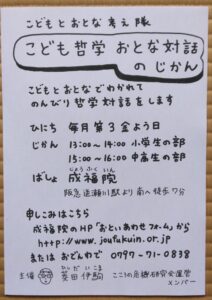 こどもとおとな考え隊
こども哲学 おとな対話
のじかん
こどもとおとなでわかれて
のんびり哲学対話をします
ひにち 毎月第3金よう日
じかん 13:00〜14:00 小学生の部
15:00〜16:00 中高生の部
じょうふくいん
ばしょ 成福院
阪急逆瀬川駅より南へ徒歩7分
申しこみはこちら
成福院のHP「おといあわせフォーム」から
http://www.joufukuin.or.jp
またはおでんわで 0797-71-0838
ひしだ いこま
主催 菱田伊駒 こころの危機研究会運営
メンバー